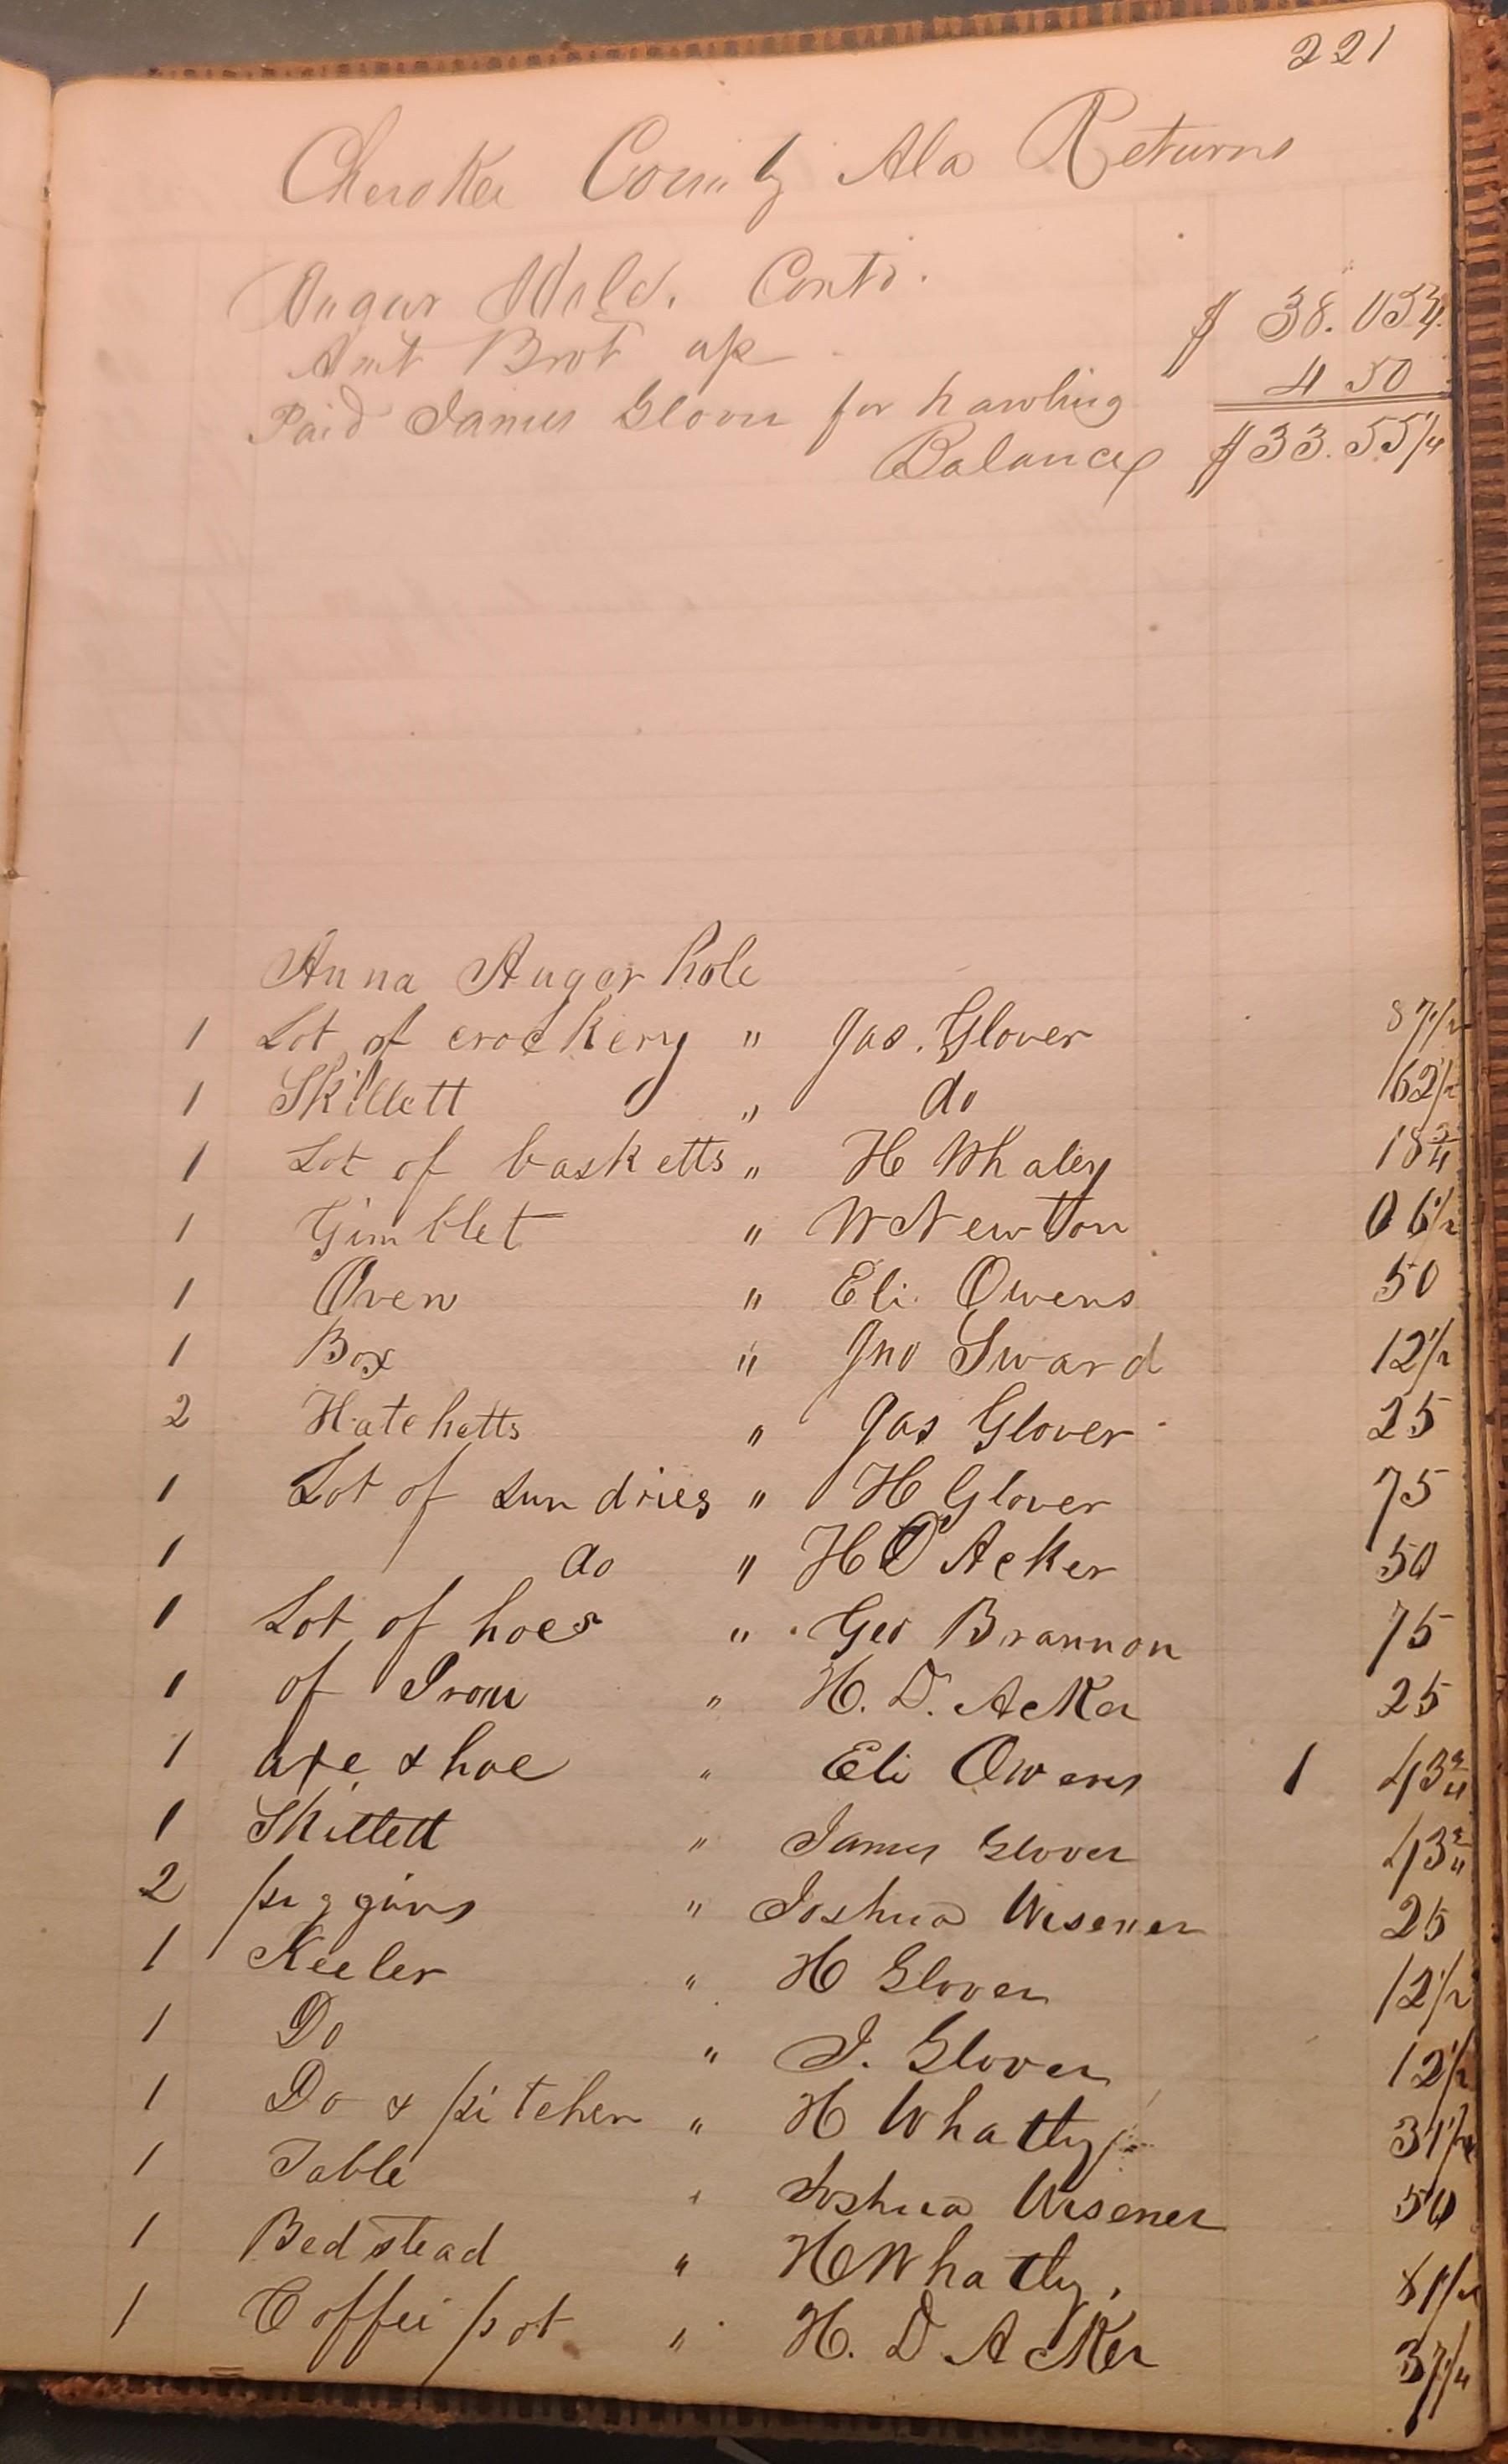 221
Cherokee County Ala Returns
Augur Hole. Contd.
Amt Brot up $ 38.05¾
Paid James Glover for hawling 4 50
Balance $ 33.55¼
Anna Augerhole
1 Lot of crockery " Jas. Glover 87½
1 Skillett " do 62½
1 Lot of basketts " H Whaley 18¾
1 Gimblet " W Newton 06½
1 Oven " Eli Owens 50
1 Box " Jno Sward 12½
2 Hatchetts " Jas Glover 25
1 Lot of sundries " H Glover 75
1 do " H D Acker 50
1 Lot of hoes " Geo Brannon 75
1 of Iron " H. D. Acker 25
1 axe & hoe " Eli Owens 1 43¾
1 Skillett " James Glover 43¾
2 piggins " Joshua Wisener 25
1 Keeler " H Glover 12½
1 Do " J. Glover 12½
1 Do & pitcher " H Whatly 31¼
1 Table " Joshua Wisener 50
1 Bedstead " H Whatly. 81½
1 Coffee pot " H. D. Acker 37¼